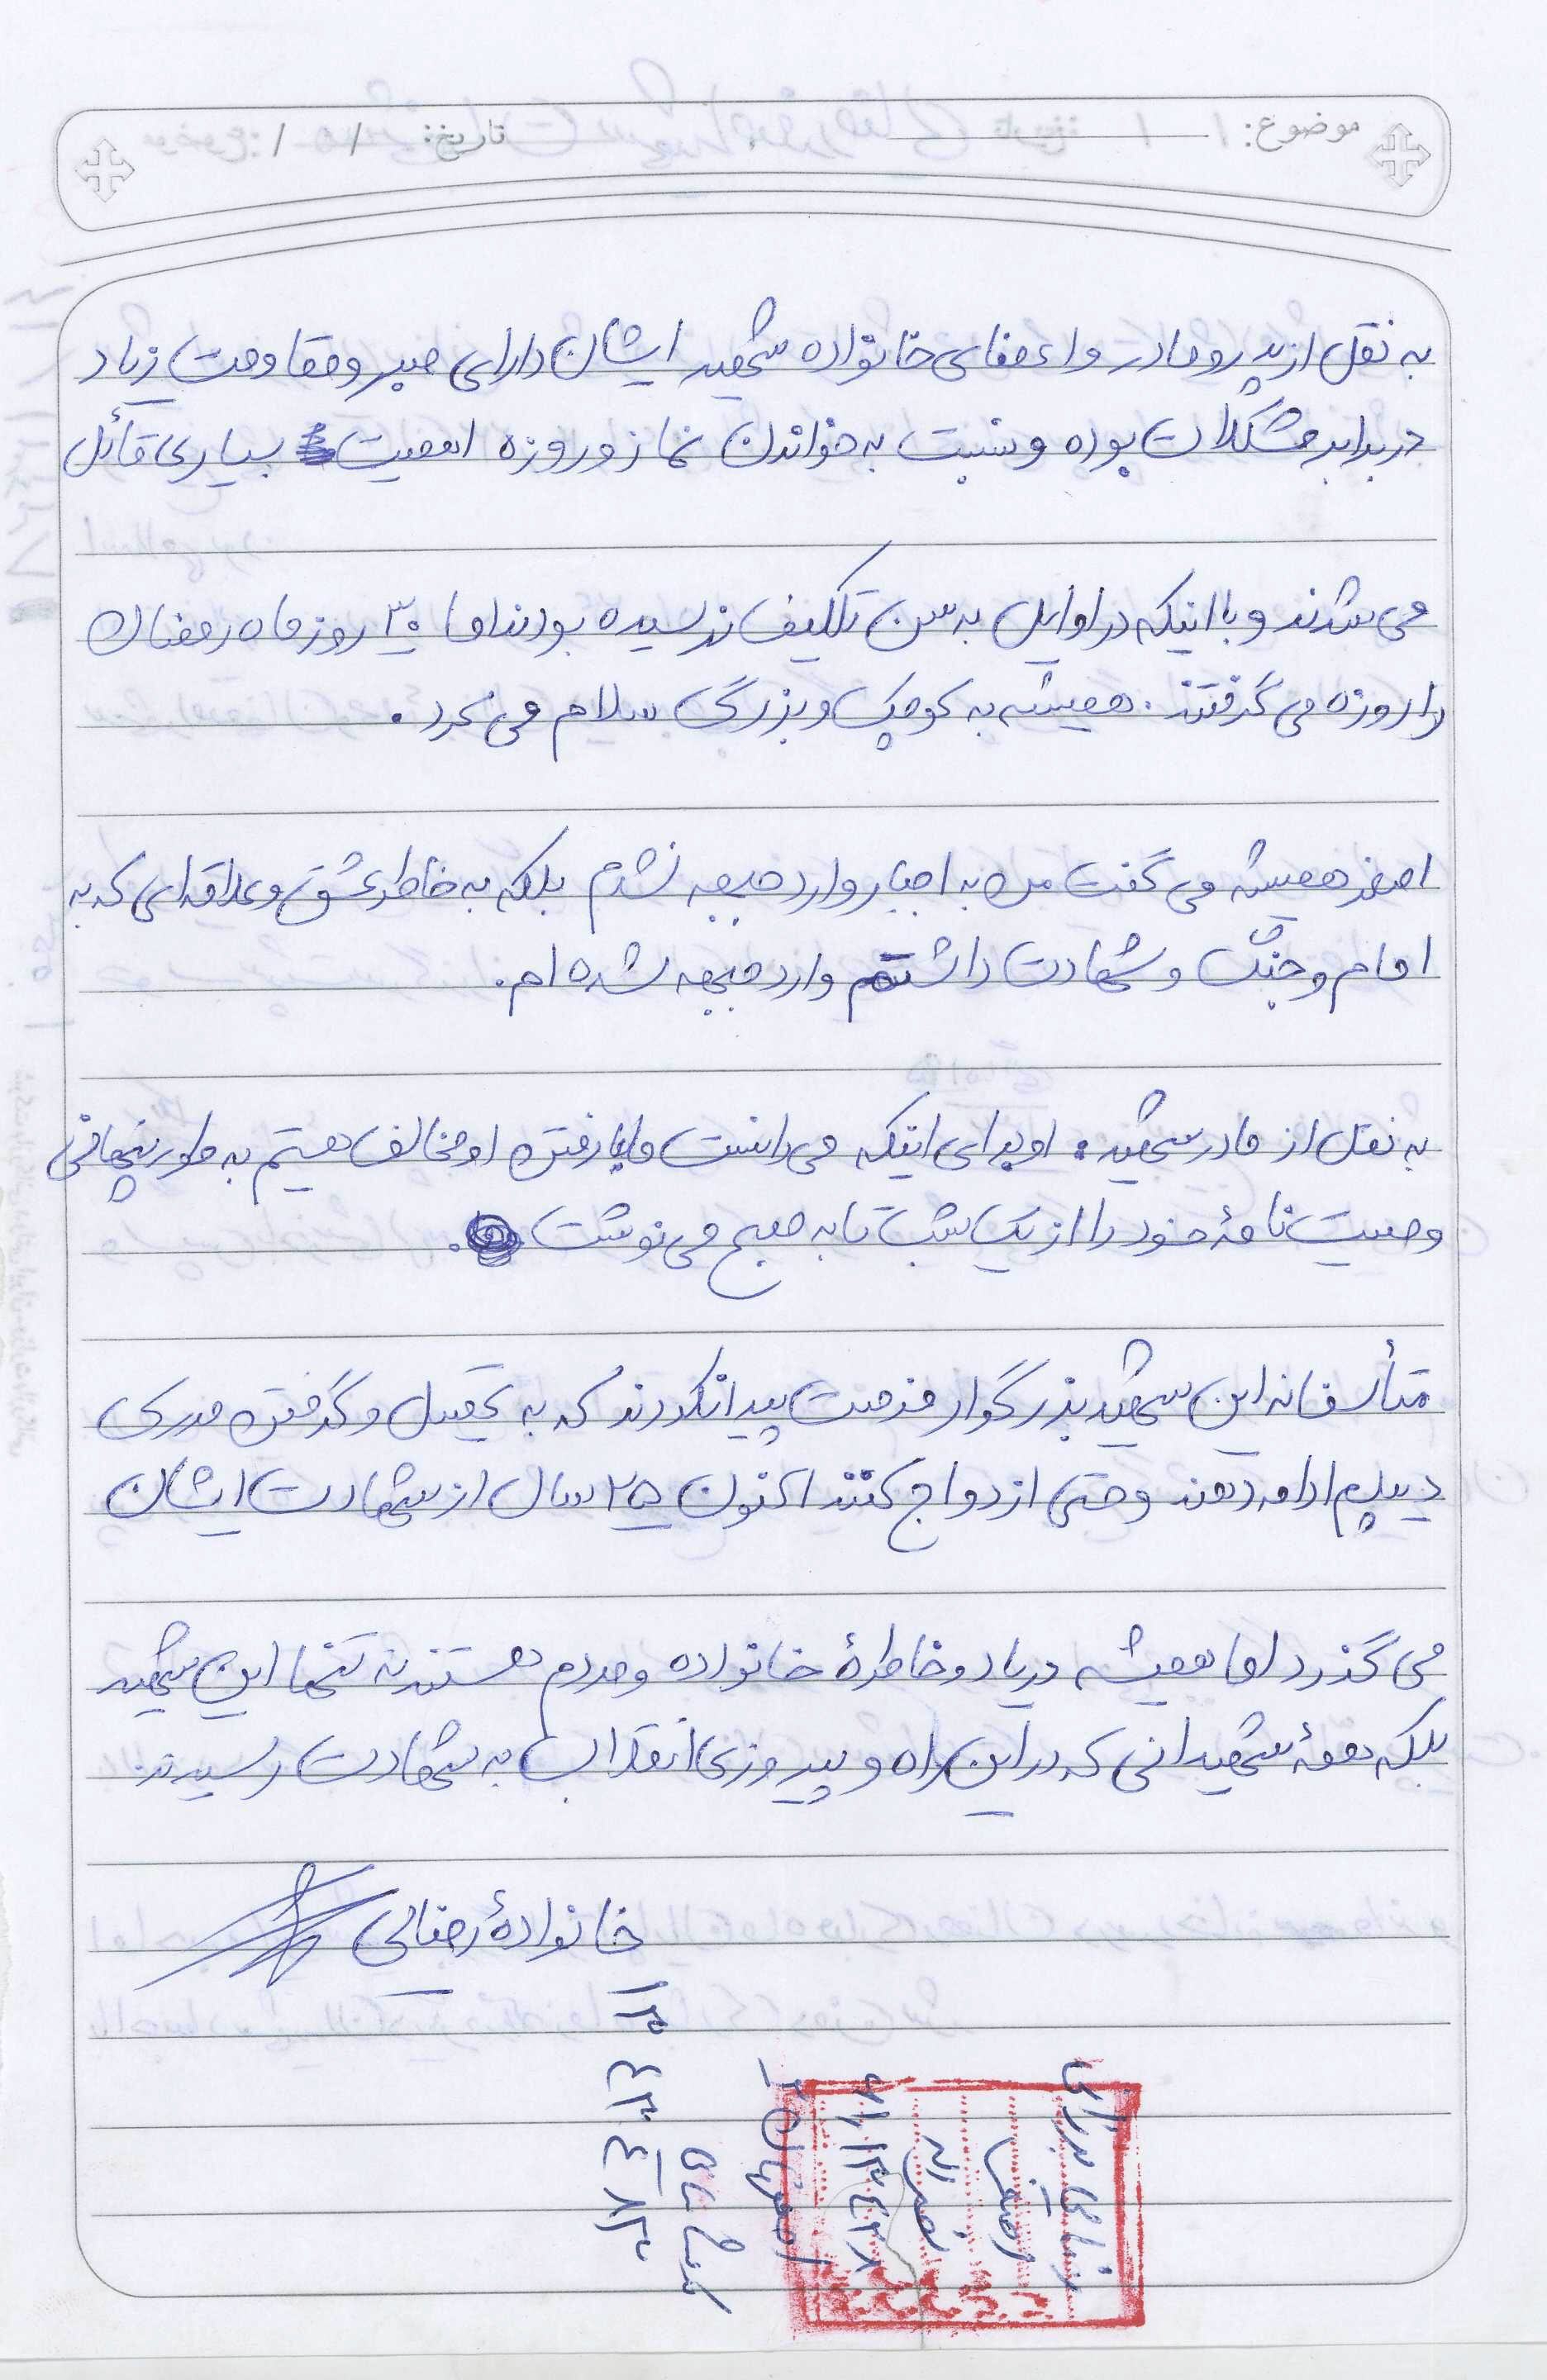 موضوع: تاریخ: / /
به نقل از پدر و مادر و اعضای خانواده شهید ایشان دارای صبر و مقاومت زیاد
در برابر مشکلات بوده و نسبت به خواندن نماز و روزه اهمیت بسیاری قائل
می شدند و با اینکه در اوایل به سن تکلیف نرسیده بودند اما ۳۰ روز ماه رمضان
را روزه می گرفتند. همیشه به کوچک و بزرگ سلام می کرد.
اصغر همیشه می گفت من به اجبار وارد جبهه نشدم بلکه به خاطر عشق و علاقه ای که به
امام و جنگ و شهادت داشتم وارد جبهه شده ام.
به نقل از مادر شهید: او برای اینکه می دانست ما با رفتن او مخالف هستیم به طور پنهانی
وصیت نامهٔ خود را از یک شب تا به صبح می نوشت.
متأسفانه این شهید بزرگوار فرصت پیدا نکردند که به تحصیل و گرفتن مدرک
دیپلم ادامه دهند و حتی ازدواج کنند اکنون ۲۵ سال از شهادت ایشان
می گذرد اما همیشه در یاد و خاطرهٔ خانواده و مردم هستند نه تنها این شهید
بلکه همهٔ شهیدانی که در این راه و پیروزی انقلاب به شهادت رسیدند.
خانوادهٔ رضائی
رضا
نصراله
اصفهان